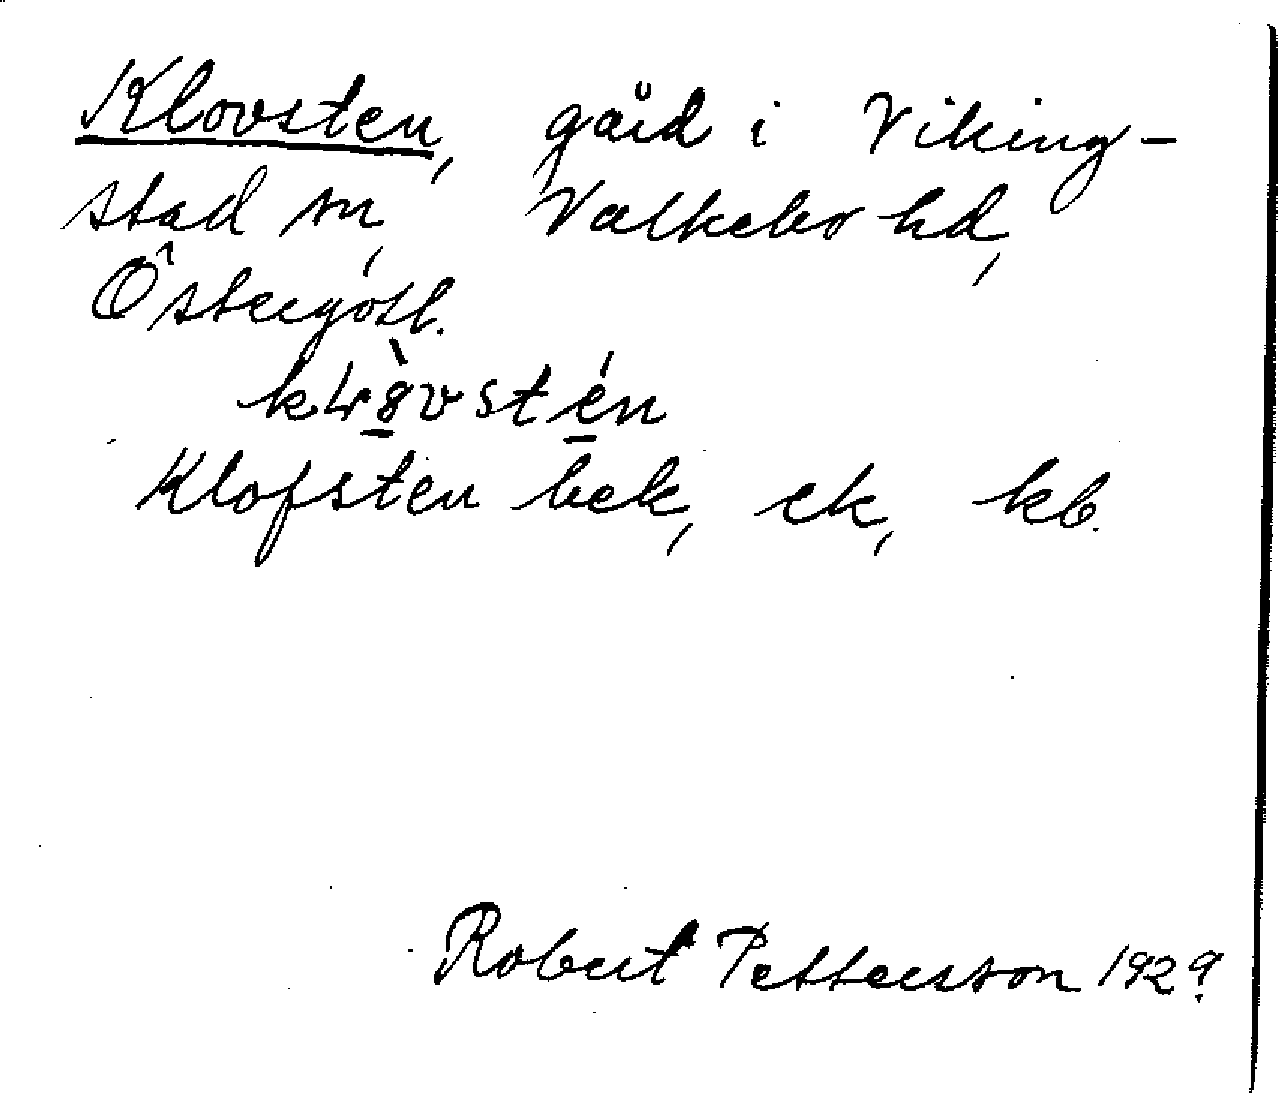 Klovsten, gård i Viking-
stad sn, Valkebo hd,
Östergötl.
Klofsten bek, ek, kb.
Robert Pettersson 1929.